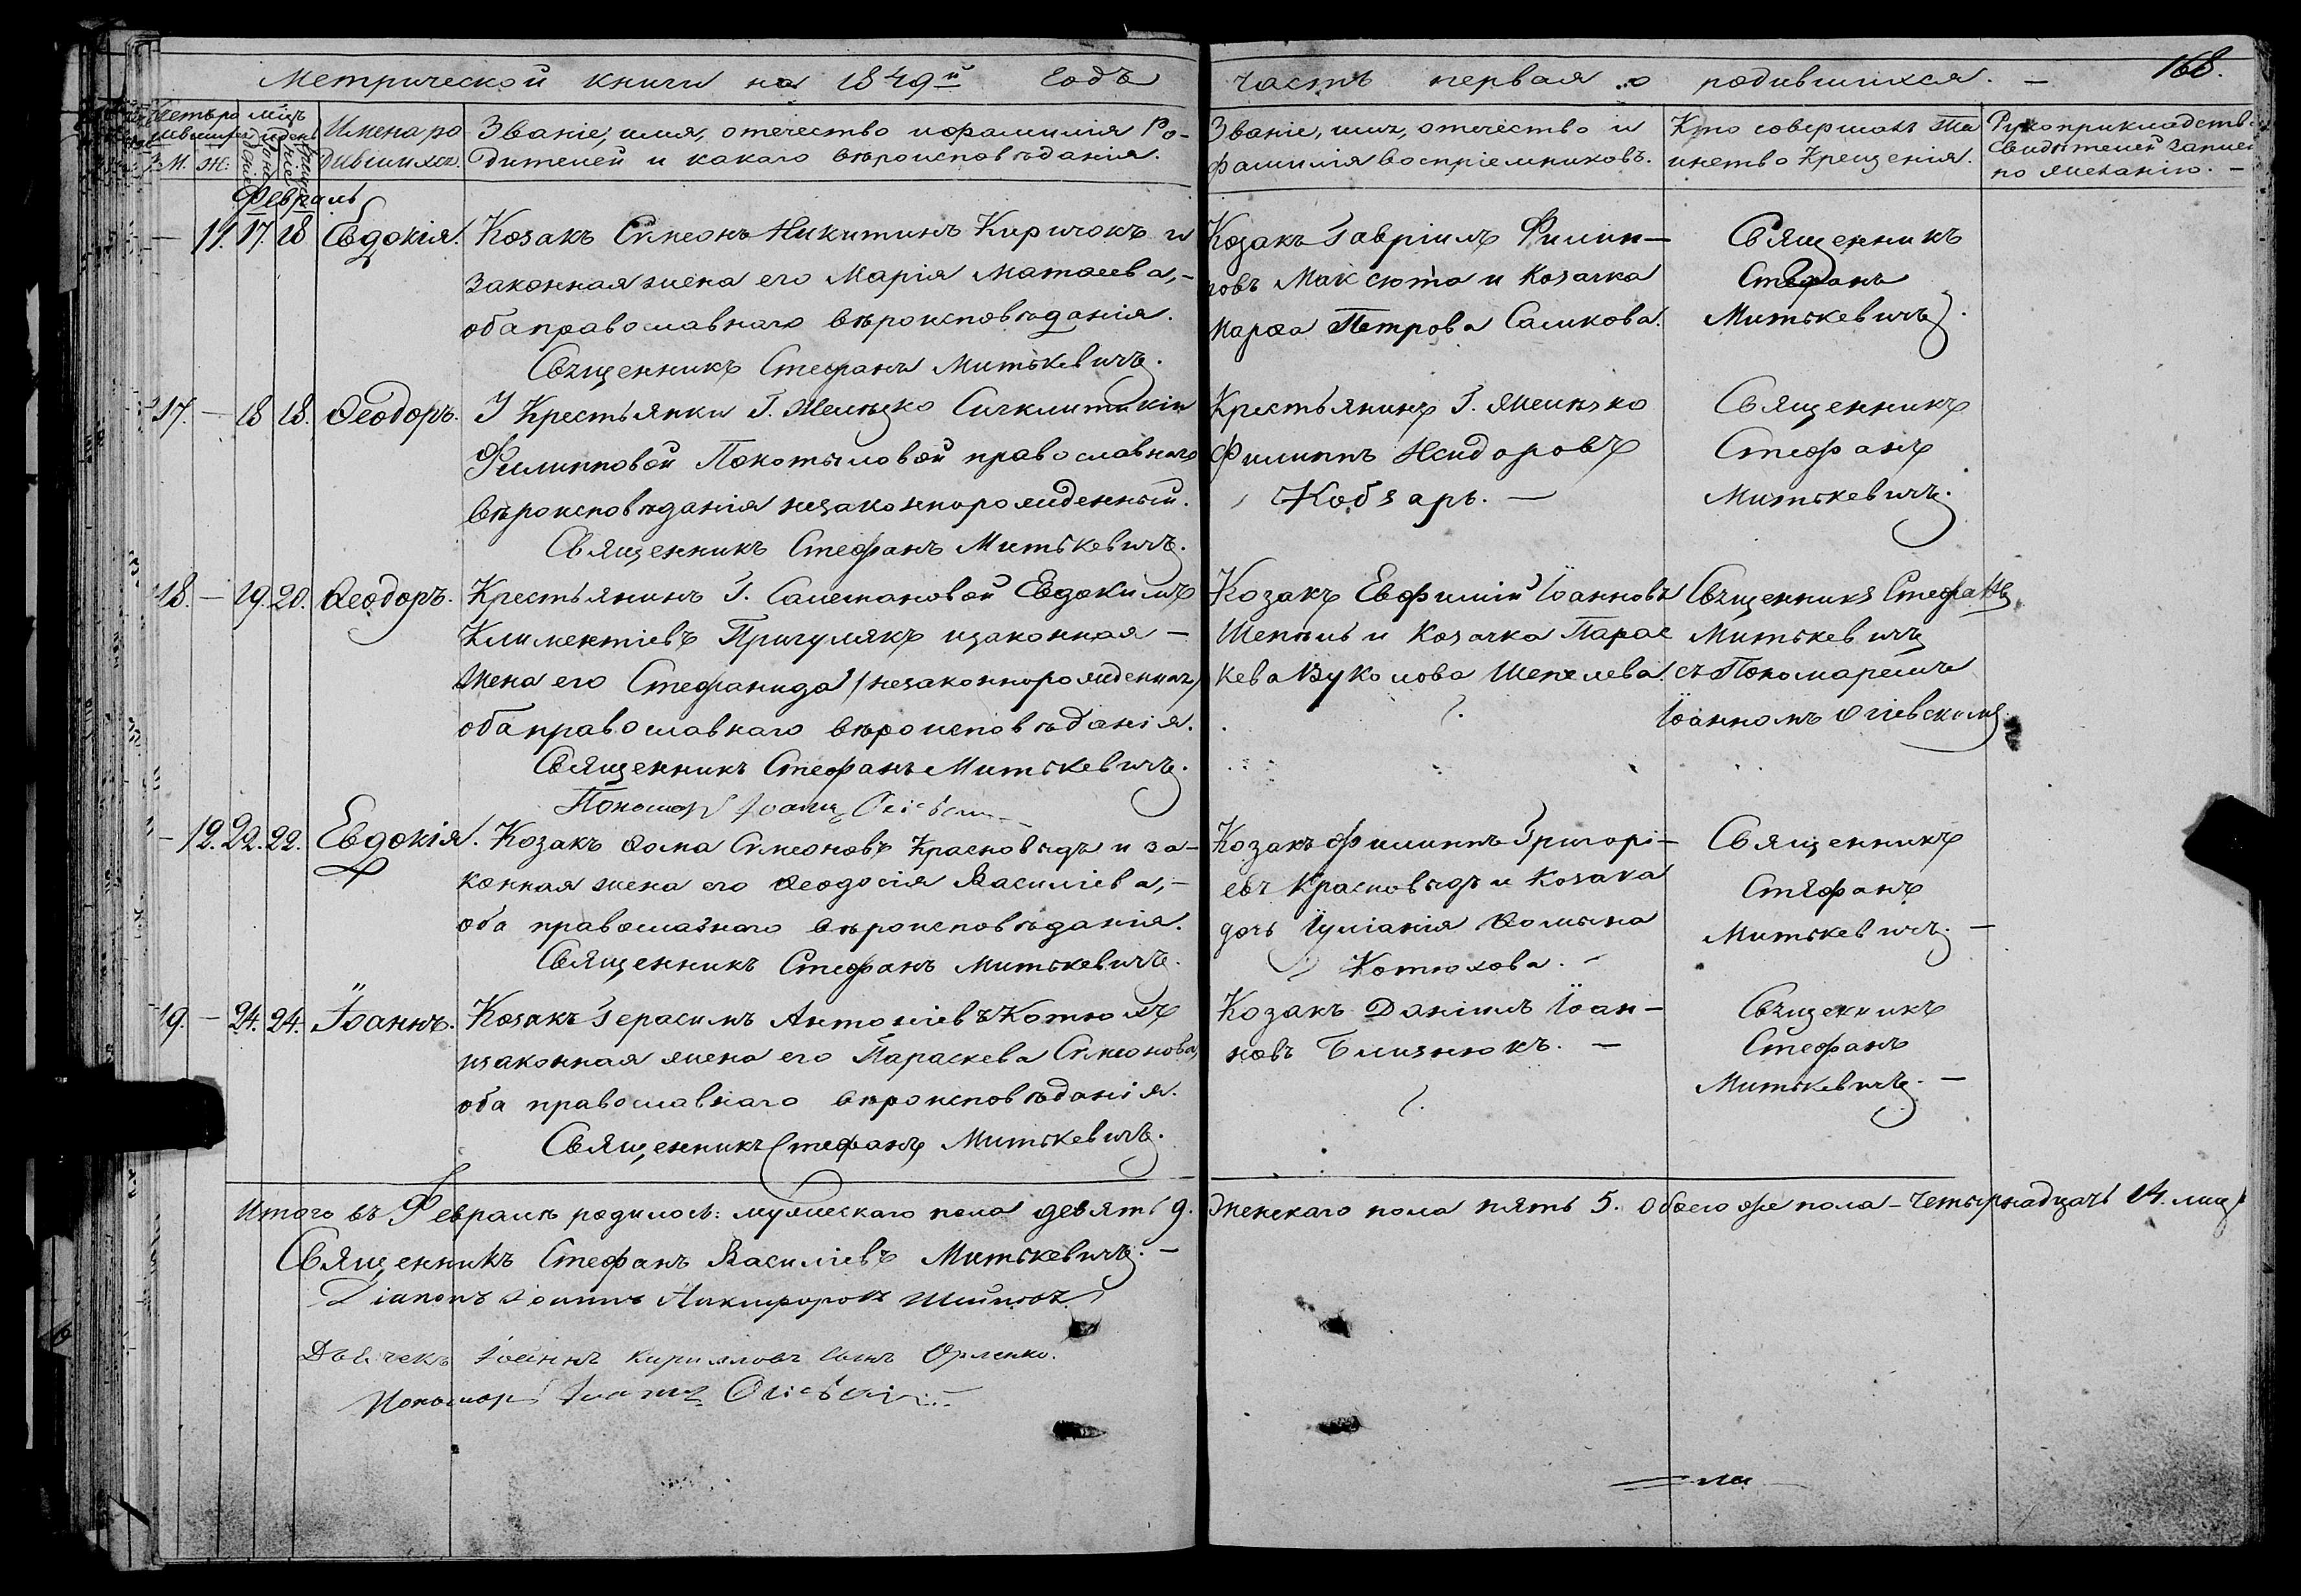 Метрической книги на 1849й Годъ часть первая о родившихся. — 168.
Имена ро
дившихся.
Званіе, имя, отечество и фамилія Ро-
дителей и какого вѣроисповѣданія.
Званіе, имя, отечество и
фамилія воспріемниковъ.
Кто совершалъ Та
инство Крещенія.
Рукоприкладство
свидѣтелей записи
по желанію. —
М. Ж.
Февраль
— 11. 17. 18 Евдокія.
Козакъ Симеонъ Никитинъ Киричокъ и
законная жена его Марія Матѳеева, —
оба православнаго вѣроисповѣданія.
Священникъ Стефанъ Митькевичъ.
Козакъ Гавріилъ Филип—
повъ Максюта и Козачка
Марѳа Петрова Саликова.
Священникъ
Стефанъ
Митькевичъ.
17. — 18 18. Ѳеодоръ.
У Крестьянки Г.
Филипповой Покотыловой православнаго
вѣроисповѣданія незаконнорожденный.
Священникъ Стефанъ Митькевичъ.
Крестьянинъ Г.
Филиппъ Исидоровъ
Кобзарь. —
Священникъ
Стефанъ
Митькевичъ.
18. — 19. 20. Ѳеодоръ.
Крестьянинъ Г. Селетановой Евдокимъ
Климентіевъ Пригулякъ и законная —
жена его Стефанида (незаконнорожденная)
оба православнаго вѣроисповѣданія.
Священникъ Стефанъ Митькевичъ.
Пономарь Іоаннъ
Козакъ Евфимій Іоанновъ
Шепель и Козачка Парас
кева Вуколова Шепелева.
Священникъ Стефанъ
Митькевичъ
съ Пономаремъ
Іоанномъ Огіевскимъ.
— 12. 22. 22. Евдокія.
Козакъ Ѳома Симеоновъ Красновидъ и за—
конная жена его Ѳеодосія Василіева, —
оба православнаго вѣроисповѣданія.
Священникъ Стефанъ Митькевичъ.
Козакъ Филиппъ Григорі—
евъ Красновидъ и Козача
дочь Іуліанія Ѳомина
Котюхова. —
Священникъ
Стефанъ
Митькевичъ. —
19. — 24. 24. Іоаннъ.
Козакъ Герасимъ Антоніевъ Котюхъ
и законная жена его Параскева Симеонова,
оба православнаго вѣроисповѣданія.
Священникъ Стефанъ Митькевичъ.
Козакъ Даніилъ Іоан—
новъ Близнюкъ. —
Священникъ
Стефанъ
Митькевичъ. —
Итого въ Февралѣ родилось: мужескаго пола девять 9. Женскаго пола пять 5. Обоего же пола — четырнадцать 14. лицъ
Священникъ Стефанъ Василіевъ Митькевичъ. —
Діаконъ Іоаннъ Никифоровъ
Дьячекъ Іоаннъ Кирилловъ сынъ Орленко.
Пономарь Іоаннъ